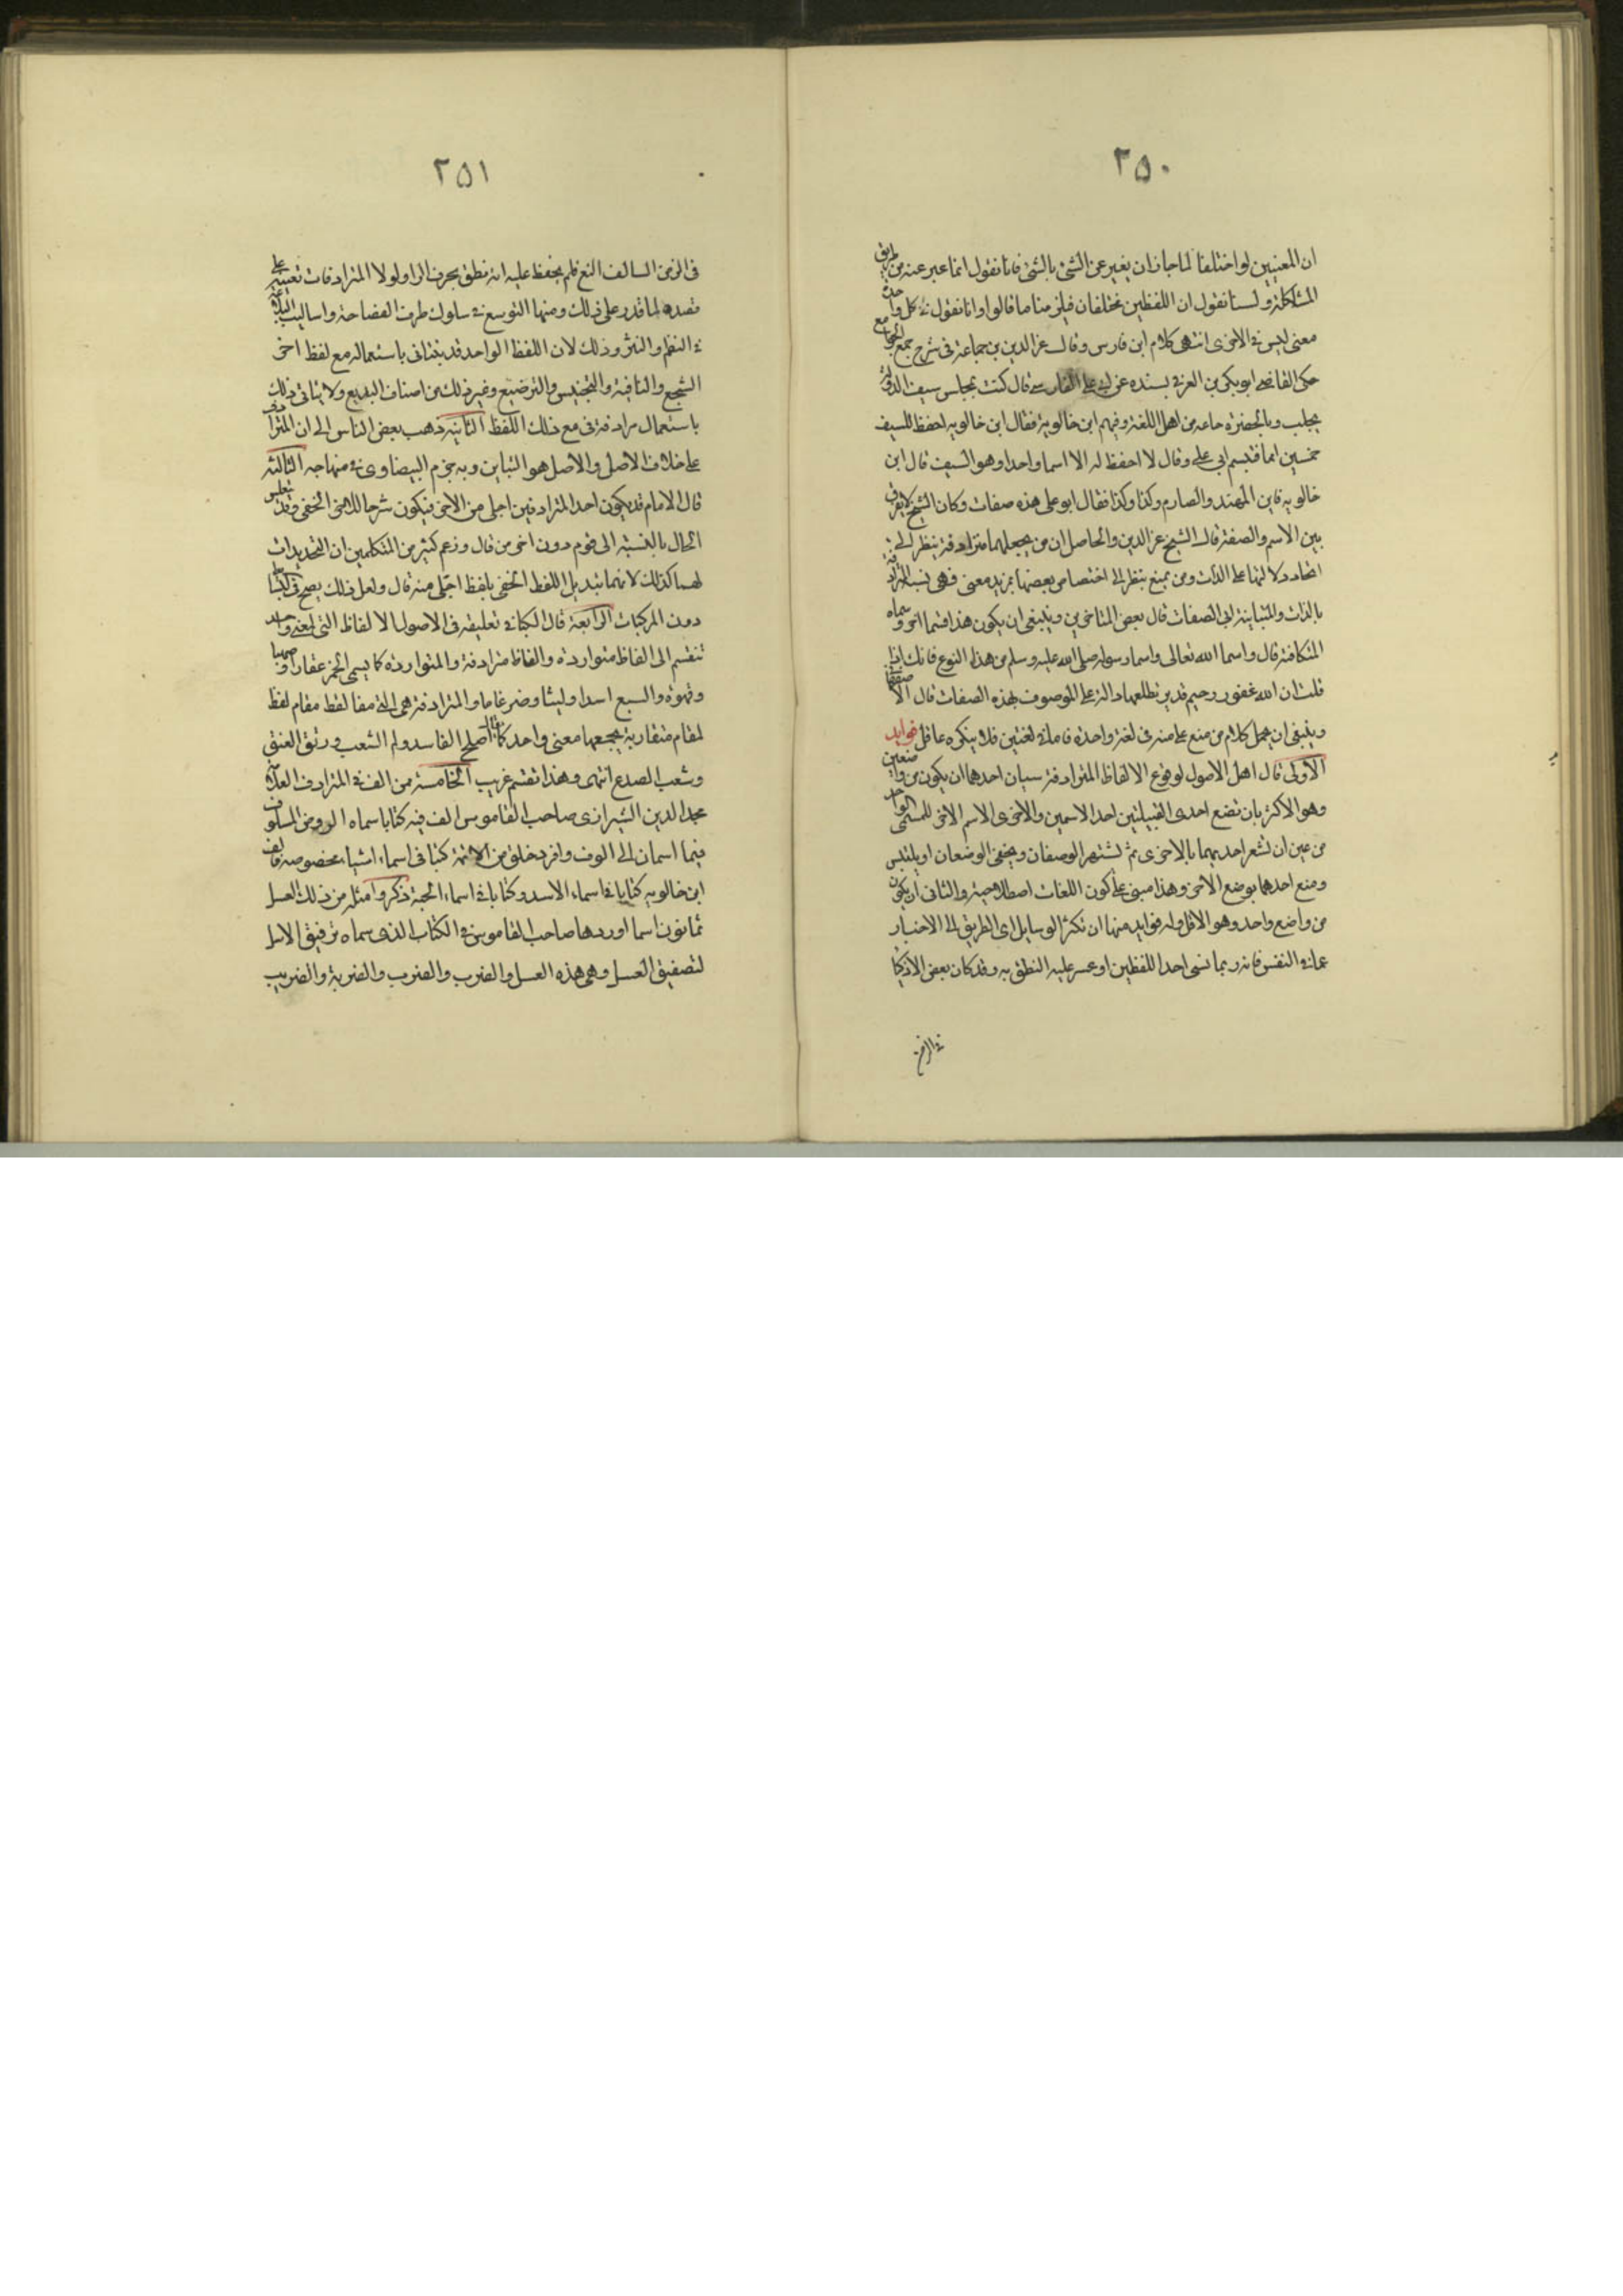 ٢٥٠
ان المعنيين لو اختلفا لما جاز ان يعبر عن الشئ بالشئ فانا نقول انما عبر عنه من طريق
المشاكلة ولسنا نقول ان اللفظين مختلفان فيلزمنا ما قالوا وانا نقول في كل واحدة
معنى ليس في الاخرى انتهى كلام ابن فارس وقال عز الدين بن جماعة في شرح جمع الجوامع
حكى القاضي ابو بكر بن العربي بسنده عن ابي علي الفارسي قال كنت بمجلس سيف الدولة
بحلب وبالحضرة جماعه من اهل اللغة وفيهم ابن خالويه فقال ابن خالويه احفظ للسيف
خمسين اسما فتبسم ابي علي وقال لا احفظ له الا اسما واحدا وهو السيف قال ابن
خالويه فاين المهند والصارم وكذا وكذا فقال ابو علي هذه صفات وكان الشيخ لا يفرق
بين الاسم والصفة قال الشيخ عز الدين والحاصل ان من يجعلهما مترادفة ينظر الى
اتحاد دلالتها على الذات ومن يمنع ينظر الى اختصاص بعضها بمزيد معنى فهى تشبه المترادفة
بالذات والمتباينة في الصفات قال بعض المتاخرين وينبغى ان يكون هذا قسما اخر وسماه
المتكافئة قال واسما الله تعالى واسما رسوله صلى الله عليه وسلم من هذا النوع فانك اذا
قلت ان الله غفور رحيم قدير تطلقها دالة على الموصوف بهذه الصفات قال الاصفهانى
وينبغى ان يحمل كلام من منع على منعه فى لغة واحدة فاما في لغتين فلا ينكره عاقل فوايد
الاولى قال اهل الاصول لوقوع الالفاظ المترادفة سببان احدهما ان يكون من واضعين
وهو الاكثر بان تضع احدى القبيلتين احد الاسمين والاخرى الاسم الاخر للمسمى الواحد
من غير ان تشعر احديهما بالاخرى ثم تشتهر الوصفان ويخفى الوضعان او يلتبس
وضع احدهما بوضع الاخر وهذا مبنى على كون اللغات اصطلاحية والثانى ان يكون
من واضع واحد وهو الاقل وله فوايد منها ان تكثر الوسايل اى الطريق الى الاخبار
عما في النفس فانه ربما نسى احد اللفظين او عسر عليه النطق به وقد كان بعض الاذكيا
في الزمن
٢٥١
فى الزمن السالف الثغ فلم يحفظ عليه انه نطق بحرف الرا ولولا المترادفات تعينه على
قصده لما قدر على ذلك ومنها التوسع في سلوك طرق الفصاحة واساليب البلاغة
في النظم والنثر وذلك لان اللفظ الواحد قد يتاتى باستعماله مع لفظ اخر
السجع والقافية والتجنيس والترصيع وغير ذلك من اصناف البديع ولا يتاتى ذلك
باستعمال مرادفه مع ذلك اللفظ الثانيه ذهب بعض الناس الى ان المترادف
على خلاف الاصل والاصل هو التباين وبه جزم البيضاوى في منهاجه الثالثه
قال الامام قد يكون احد المترادفين اجلى من الاخر فيكون شرحا للاخر الخفى وقد ينعكس
الحال بالنسبة الى قوم دون اخرين قال وزعم كثير من المتكلمين ان التحديدات
كلها كذلك لانها تبديل اللفظ الخفى بلفظ اجلى منه قال ولعل ذلك يصح فى البسايط
دون المركبات الرابعة قال الكيا في تعليقه فى الاصول الالفاظ التى لمعنى واحد
تنقسم الى الفاظ متواردة والفاظ مترادفة والمتواردة كما يسمى الخمر عقارا وصهبا
وقهوة والسبع اسدا وليثا وضرغاما والمترادفة هى التي يقام لفظ مقام لفظ
لمقام متقاربة يجمعها معنى واحد كما يقال اصلح الفاسد ولم الشعب ورتق الفتق
وشعب الصدع انتهى وهذا تقسيم غريب الخامسة ممن الف في المترادف العلامة
مجد الدين الشيرازى صاحب القاموس الف فيه كتابا سماه الروض المسلوف
فيما اسمان الى الوف وافرد خلق من الائمة كتبا فى اسماء اشياء مخصوصه فالف
ابن خالويه كتابا في اسماء الاسد وكتابا في اسماء الحية ذكر وامثله من ذلك العسل
ثمانون اسما اوردها صاحب القاموس في الكتاب الذى سماه ترقيق الاسل
لتصفيق العسل وهى هذه العسل والضرب والضرب والضربة والضريب